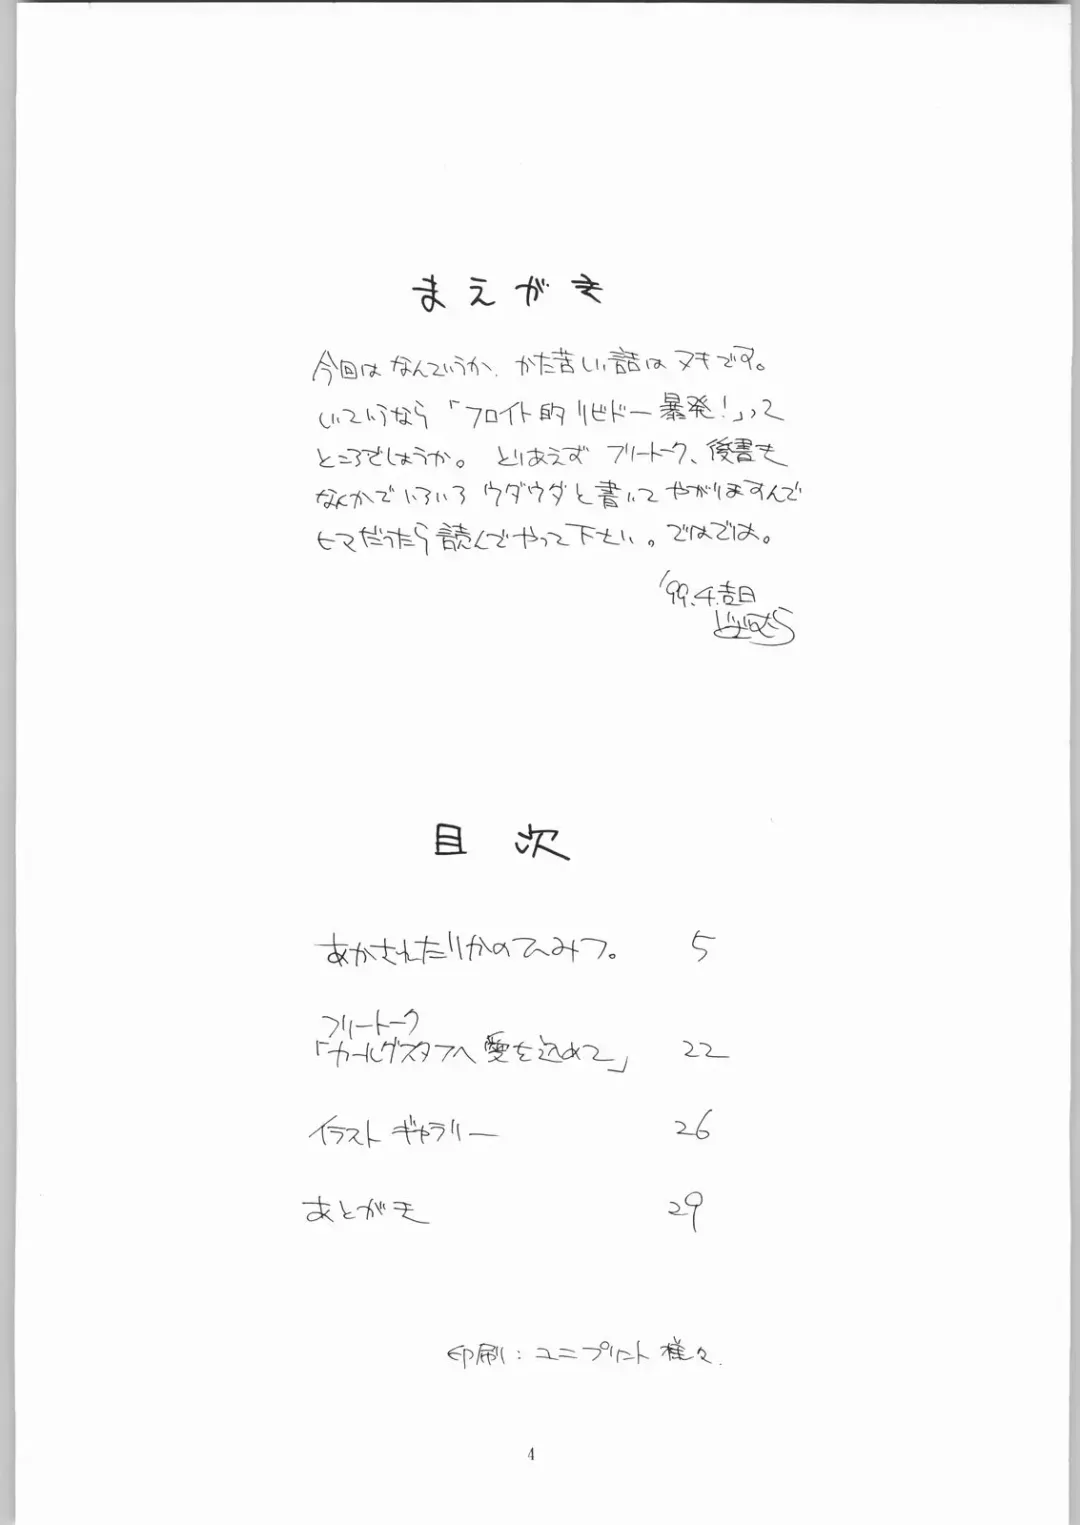 まえがき
今回はなんていうか、かた苦しい話はヌキです。
しいていうなら「フロイト的リビドー暴発!」って
ところでしょうか。とりあえずフリートーク、後書も
なんかでいろいろウダウダと書いてやがりますんで
ヒマだったら読んでやって下さい。ではでは。
'99.4.吉日
目次
あかされたリカのひみつ。 5
フリートーク
「カールグスタフへ愛を込めて」 22
イラストギャラリー 26
あとがき 29
印刷:ユニプリント様々.
4